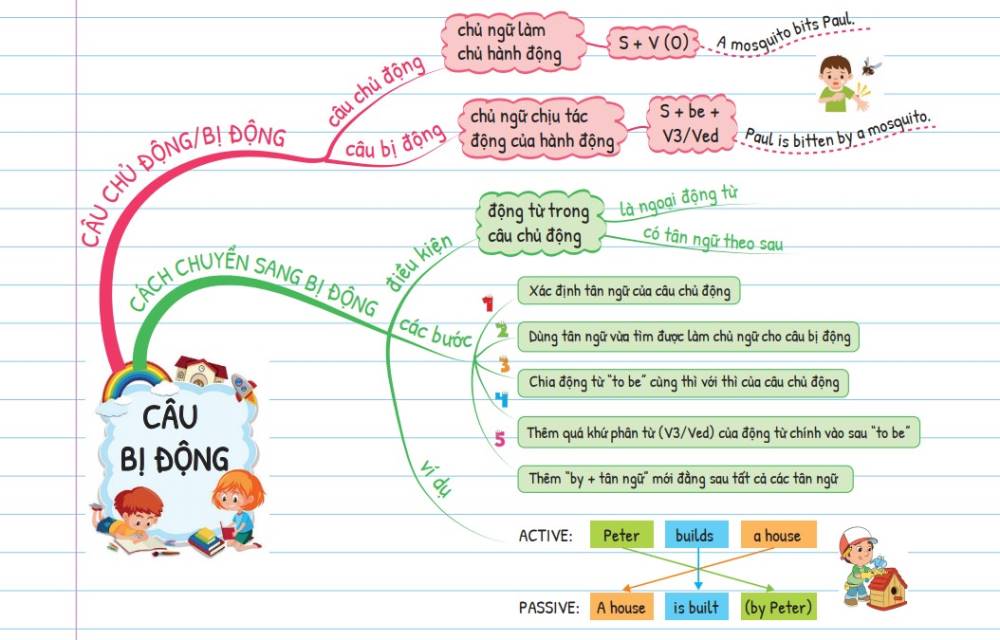 CÂU CHỦ ĐỘNG/BỊ ĐỘNG
câu chủ động
chủ ngữ làm
chủ hành động
S + V (O)
A mosquito bits Paul.
câu bị động
chủ ngữ chịu tác
động của hành động
S + be +
V3/Ved
Paul is bitten by a mosquito.
CÁCH CHUYỂN SANG BỊ ĐỘNG
điều kiện
động từ trong
câu chủ động
là ngoại động từ
có tân ngữ theo sau
các bước
1
Xác định tân ngữ của câu chủ động
2
Dùng tân ngữ vừa tìm được làm chủ ngữ cho câu bị động
3
Chia động từ "to be" cùng thì với thì của câu chủ động
4
Thêm quá khứ phân từ (V3/Ved) của động từ chính vào sau "to be"
5
Thêm "by + tân ngữ" mới đằng sau tất cả các tân ngữ
ví dụ
ACTIVE: Peter builds a house
PASSIVE: A house is built (by Peter)
CÂU
BỊ ĐỘNG